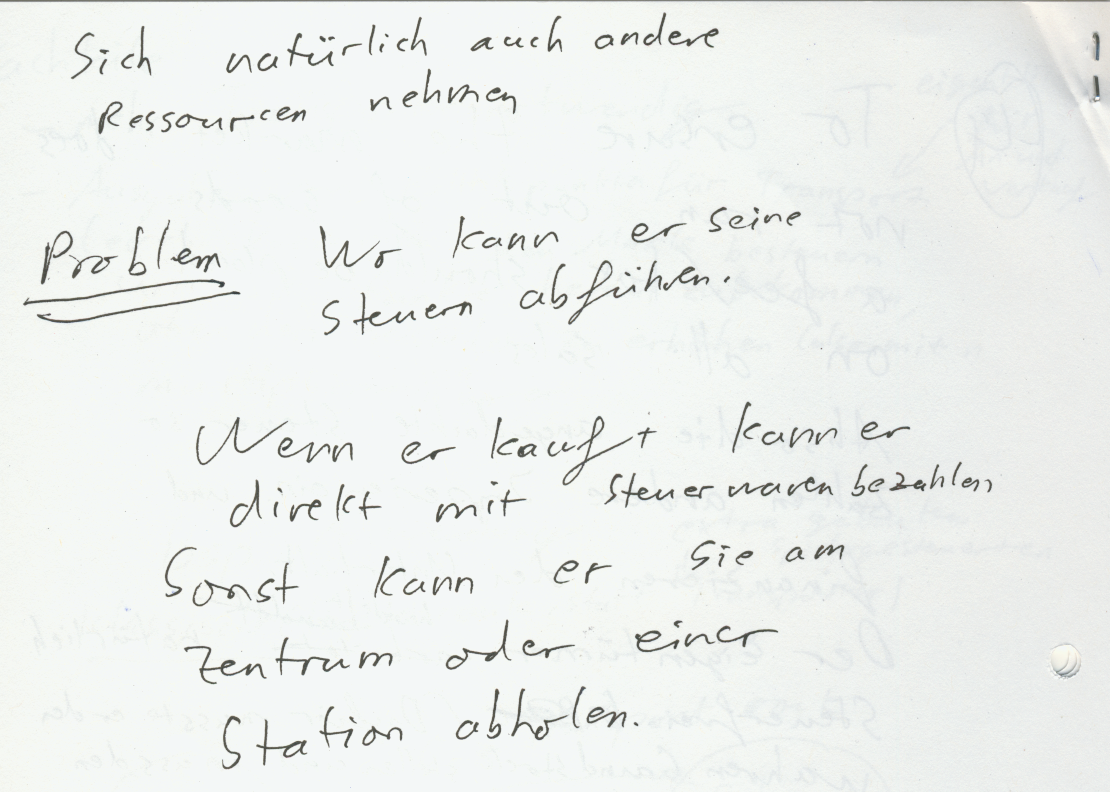 Sich natürlich auch andere
Ressourcen nehmen
Problem Wo kann er seine
Steuern abführen.
Wenn er kauft kann er
direkt mit Steuerwaren bezahlen
Sonst kann er sie am
Zentrum oder einer
Station abholen.